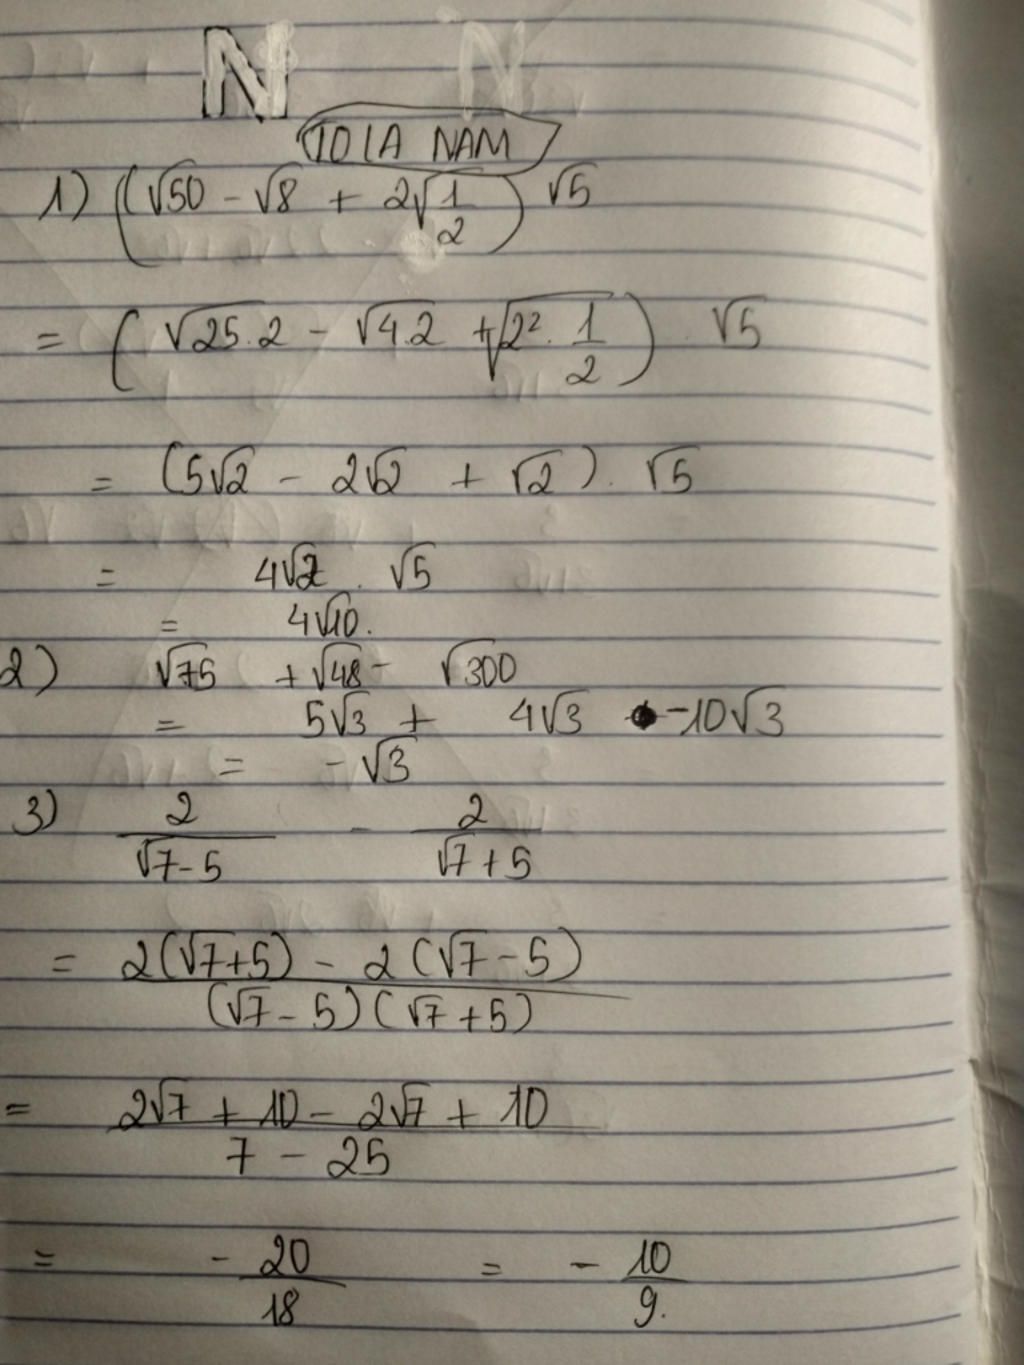 N N
10LA NAM
1) (√50 - √8 + 2√1/2) √5
= (√25.2 - √4.2 + √2². 1/2) . √5
= (5√2 - 2√2 + √2) . √5
= 4√2 . √5
= 4√10.
2) √75 + √48 - √300
= 5√3 + 4√3 - 10√3
= - √3
3) 2/(√7 - 5) - 2/(√7 + 5)
= (2(√7+5) - 2(√7 - 5))/((√7 - 5)(√7 + 5))
= (2√7 + 10 - 2√7 + 10)/(7 - 25)
= - 20/18 = - 10/9.